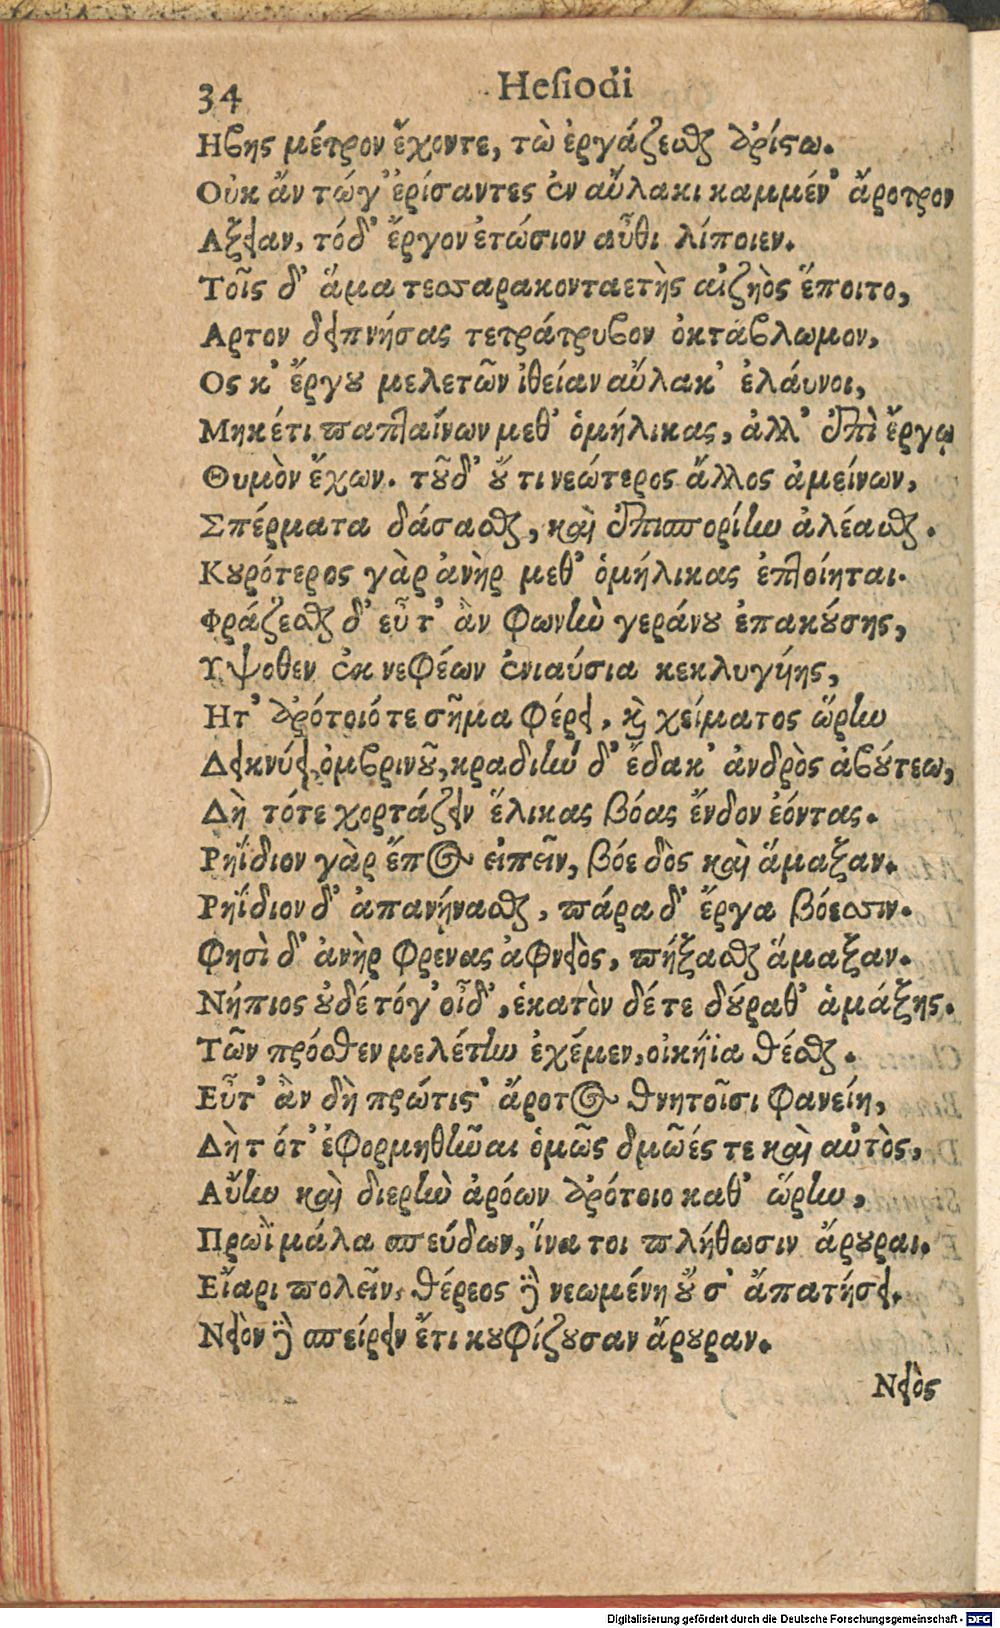 34 Heſiodi
Ηϐης μέτρον ἔχοντε, τὼ ἐργάζεσθαι ἀρίστω.
Οὐκ ἄν τώγ' ἐρίσαντες ἐν αὔλακι καμμέν' ἄροτρον
Αξειαν, τόδ' ἔργον ἐτώσιον αὖθι λίποιεν.
Τοῖς δ' ἅμα τεσσαρακονταετὴς αἰζηὸς ἕποιτο,
Αρτον δειπνήσας τετράτρυϐον ὀκτάϐλωμον,
Ος κ' ἔργου μελετῶν ἰθείαν αὔλακ' ἐλάυνοι,
Μηκέτι παπταίνων μεθ' ὁμήλικας, ἀλλ' ἐπὶ ἔργῳ
Θυμὸν ἔχων. τοῦδ' οὔ τι νεώτερος ἄλλος ἀμείνων,
Σπέρματα δάσασθαι, καὶ ἐπισπορίην ἀλέασθαι.
Κουρότερος γὰρ ἀνὴρ μεθ' ὁμήλικας ἐπτοίηται.
Φράζεσθαι δ' εὖτ' ἂν φωνὴν γεράνου ἐπακούσης,
Υψοθεν ἐκ νεφέων ἐνιαύσια κεκλυγήης,
Ητ' ἀρότοιό τε σῆμα φέρει, καὶ χείματος ὥρην
Δεικνύει ὀμϐρινοῦ, κραδίην δ' ἔδακ' ἀνδρὸς ἀϐούτεω,
Δὴ τότε χορτάζειν ἕλικας βόας ἔνδον ἐόντας.
Ρηΐδιον γὰρ ἔπος εἰπεῖν, βόε δὸς καὶ ἅμαξαν.
Ρηΐδιον δ' ἀπανήνασθαι, πάρα δ' ἔργα βόεσσιν.
Φησὶ δ' ἀνὴρ φρενας ἀφνειὸς, πήξασθαι ἅμαξαν.
Νήπιος οὐδέ τόγ' οἶδ', ἑκατὸν δέ τε δούραθ' ἁμάξης.
Τῶν πρόσθεν μελέτην ἐχέμεν, οἰκήϊα θέσθαι.
Εὖτ' ἂν δὴ πρώτις' ἄροτος θνητοῖσι φανείη,
Δὴ τ ότ' ἐφορμηθῆναι ὁμῶς δμῶές τε καὶ αὐτὸς,
Αὔην καὶ διερὴν ἀρόων ἀρότοιο καθ' ὥρην,
Πρωῒ μάλα σπεύδων, ἵνα τοι πλήθωσιν ἄρουραι.
Εἴαρι πολεῖν, θέρεος δὲ νεωμένη οὔ σ' ἄπατήσει.
Νειὸν δὲ σπείρειν ἔτι κουφίζουσαν ἄρουραν.
Νειὸς
Digitalisierung gefördert durch die Deutsche Forschungsgemeinschaft - DFG